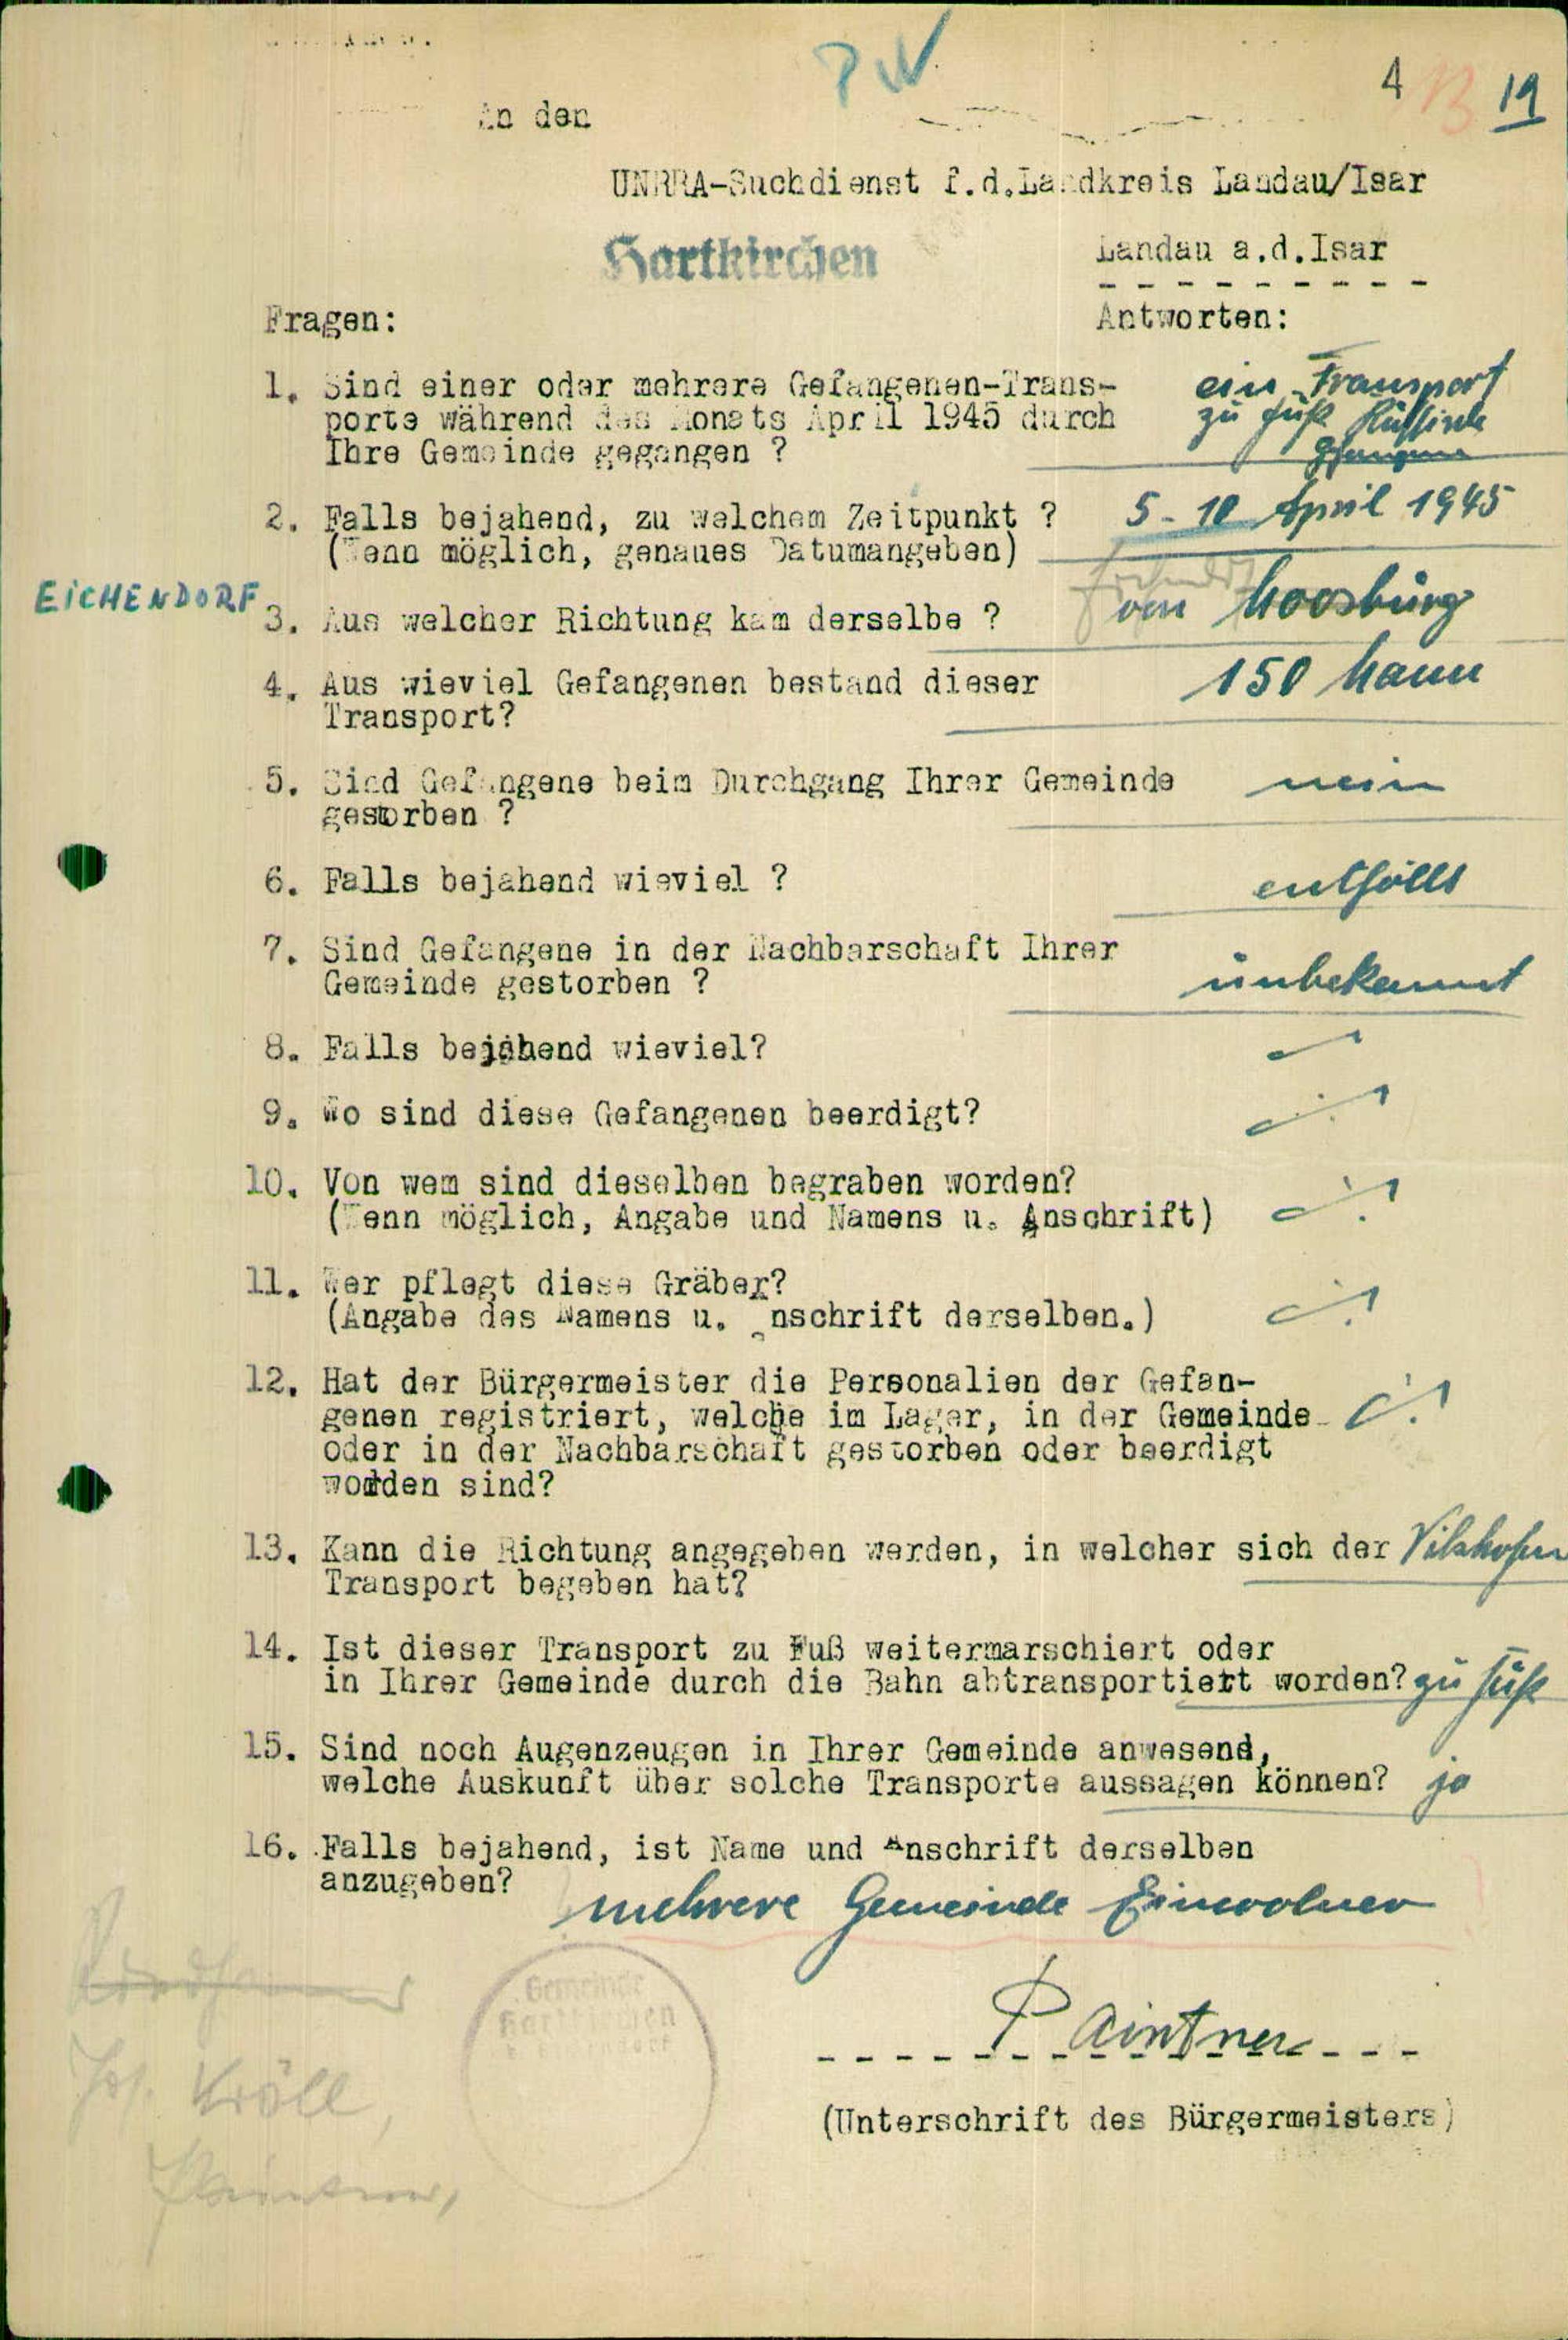 PW
4 13 19
An den
UNRRA-Suchdienst f.d.Landkreis Landau/Isar
Hartkirchen
Landau a.d.Isar
Fragen:
Antworten:
1. Sind einer oder mehrere Gefangenen-Trans-
porte während des Monats April 1945 durch
Ihre Gemeinde gegangen ?
ein Transport
zu Fuß Russische
Gefangene
2. Falls bejahend, zu welchem Zeitpunkt ?
(Wenn möglich, genaues Datumangeben)
5 - 10 April 1945
EICHENDORF
3. Aus welcher Richtung kam derselbe ?
von Moosburg
4. Aus wieviel Gefangenen bestand dieser
Transport?
150 Mann
5. Sind Gefangene beim Durchgang Ihrer Gemeinde
gestorben ?
nein
6. Falls bejahend wieviel ?
entfällt
7. Sind Gefangene in der Nachbarschaft Ihrer
Gemeinde gestorben ?
unbekannt
8. Falls bejahend wieviel?
9. Wo sind diese Gefangenen beerdigt?
10. Von wem sind dieselben begraben worden?
(Wenn möglich, Angabe und Namens u. Anschrift)
11. Wer pflegt diese Gräber?
(Angabe des Namens u. Anschrift derselben.)
12. Hat der Bürgermeister die Personalien der Gefan-
genen registriert, welche im Lager, in der Gemeinde
oder in der Nachbarschaft gestorben oder beerdigt
worden sind?
13. Kann die Richtung angegeben werden, in welcher sich der
Transport begeben hat?
Vilshofen
14. Ist dieser Transport zu Fuß weitermarschiert oder
in Ihrer Gemeinde durch die Bahn abtransportiert worden?
zu Fuß
15. Sind noch Augenzeugen in Ihrer Gemeinde anwesend,
welche Auskunft über solche Transporte aussagen können?
ja
16. Falls bejahend, ist Name und Anschrift derselben
anzugeben?
mehrere Gemeinde Einwohner
Gemeinde
Hartkirchen
Paintner
(Unterschrift des Bürgermeisters)
Jos. Kröll,
Paintner,